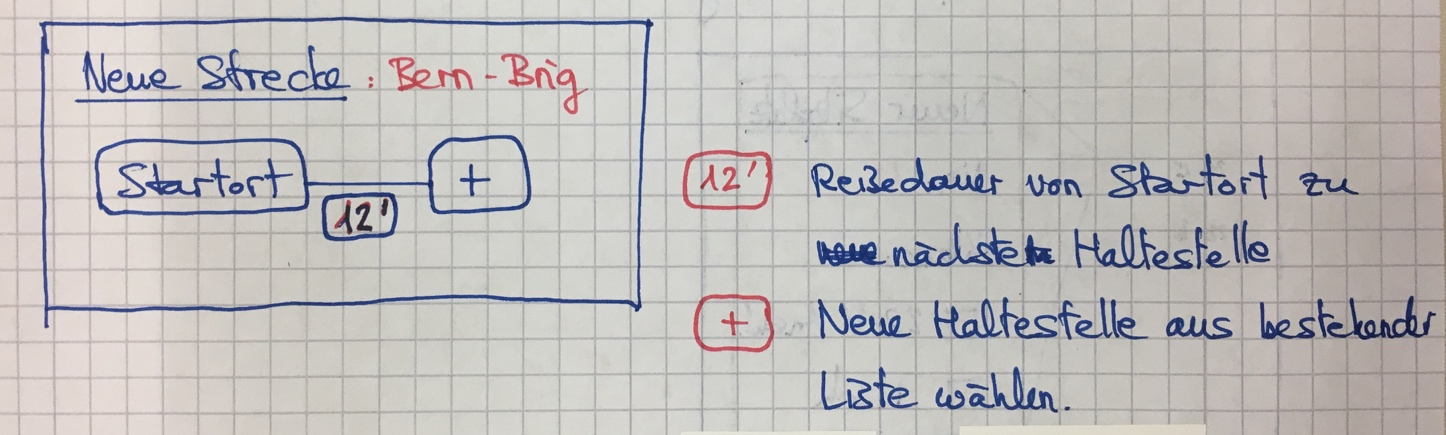 Neue Strecke : Bern - Brig
Startort
+
12'
12' Reisedauer von Startort zu
nächste Haltestelle
+ Neue Haltestelle aus bestehender
Liste wählen.